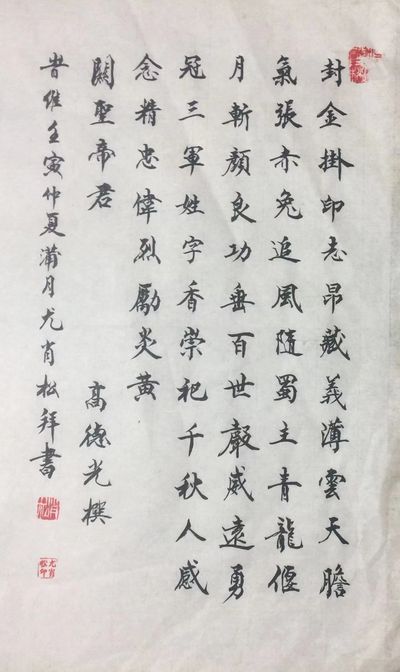 封金掛印志昂藏義薄雲天膽
氣張赤兔追風隨蜀主青龍偃
月斬顏良功垂百世聲威遠勇
冠三軍姓字香崇祀千秋人感
念精忠偉烈勵炎黃
關聖帝君 高德光撰
旹維壬寅仲夏蒲月尤肖松拜書
尤肖松印